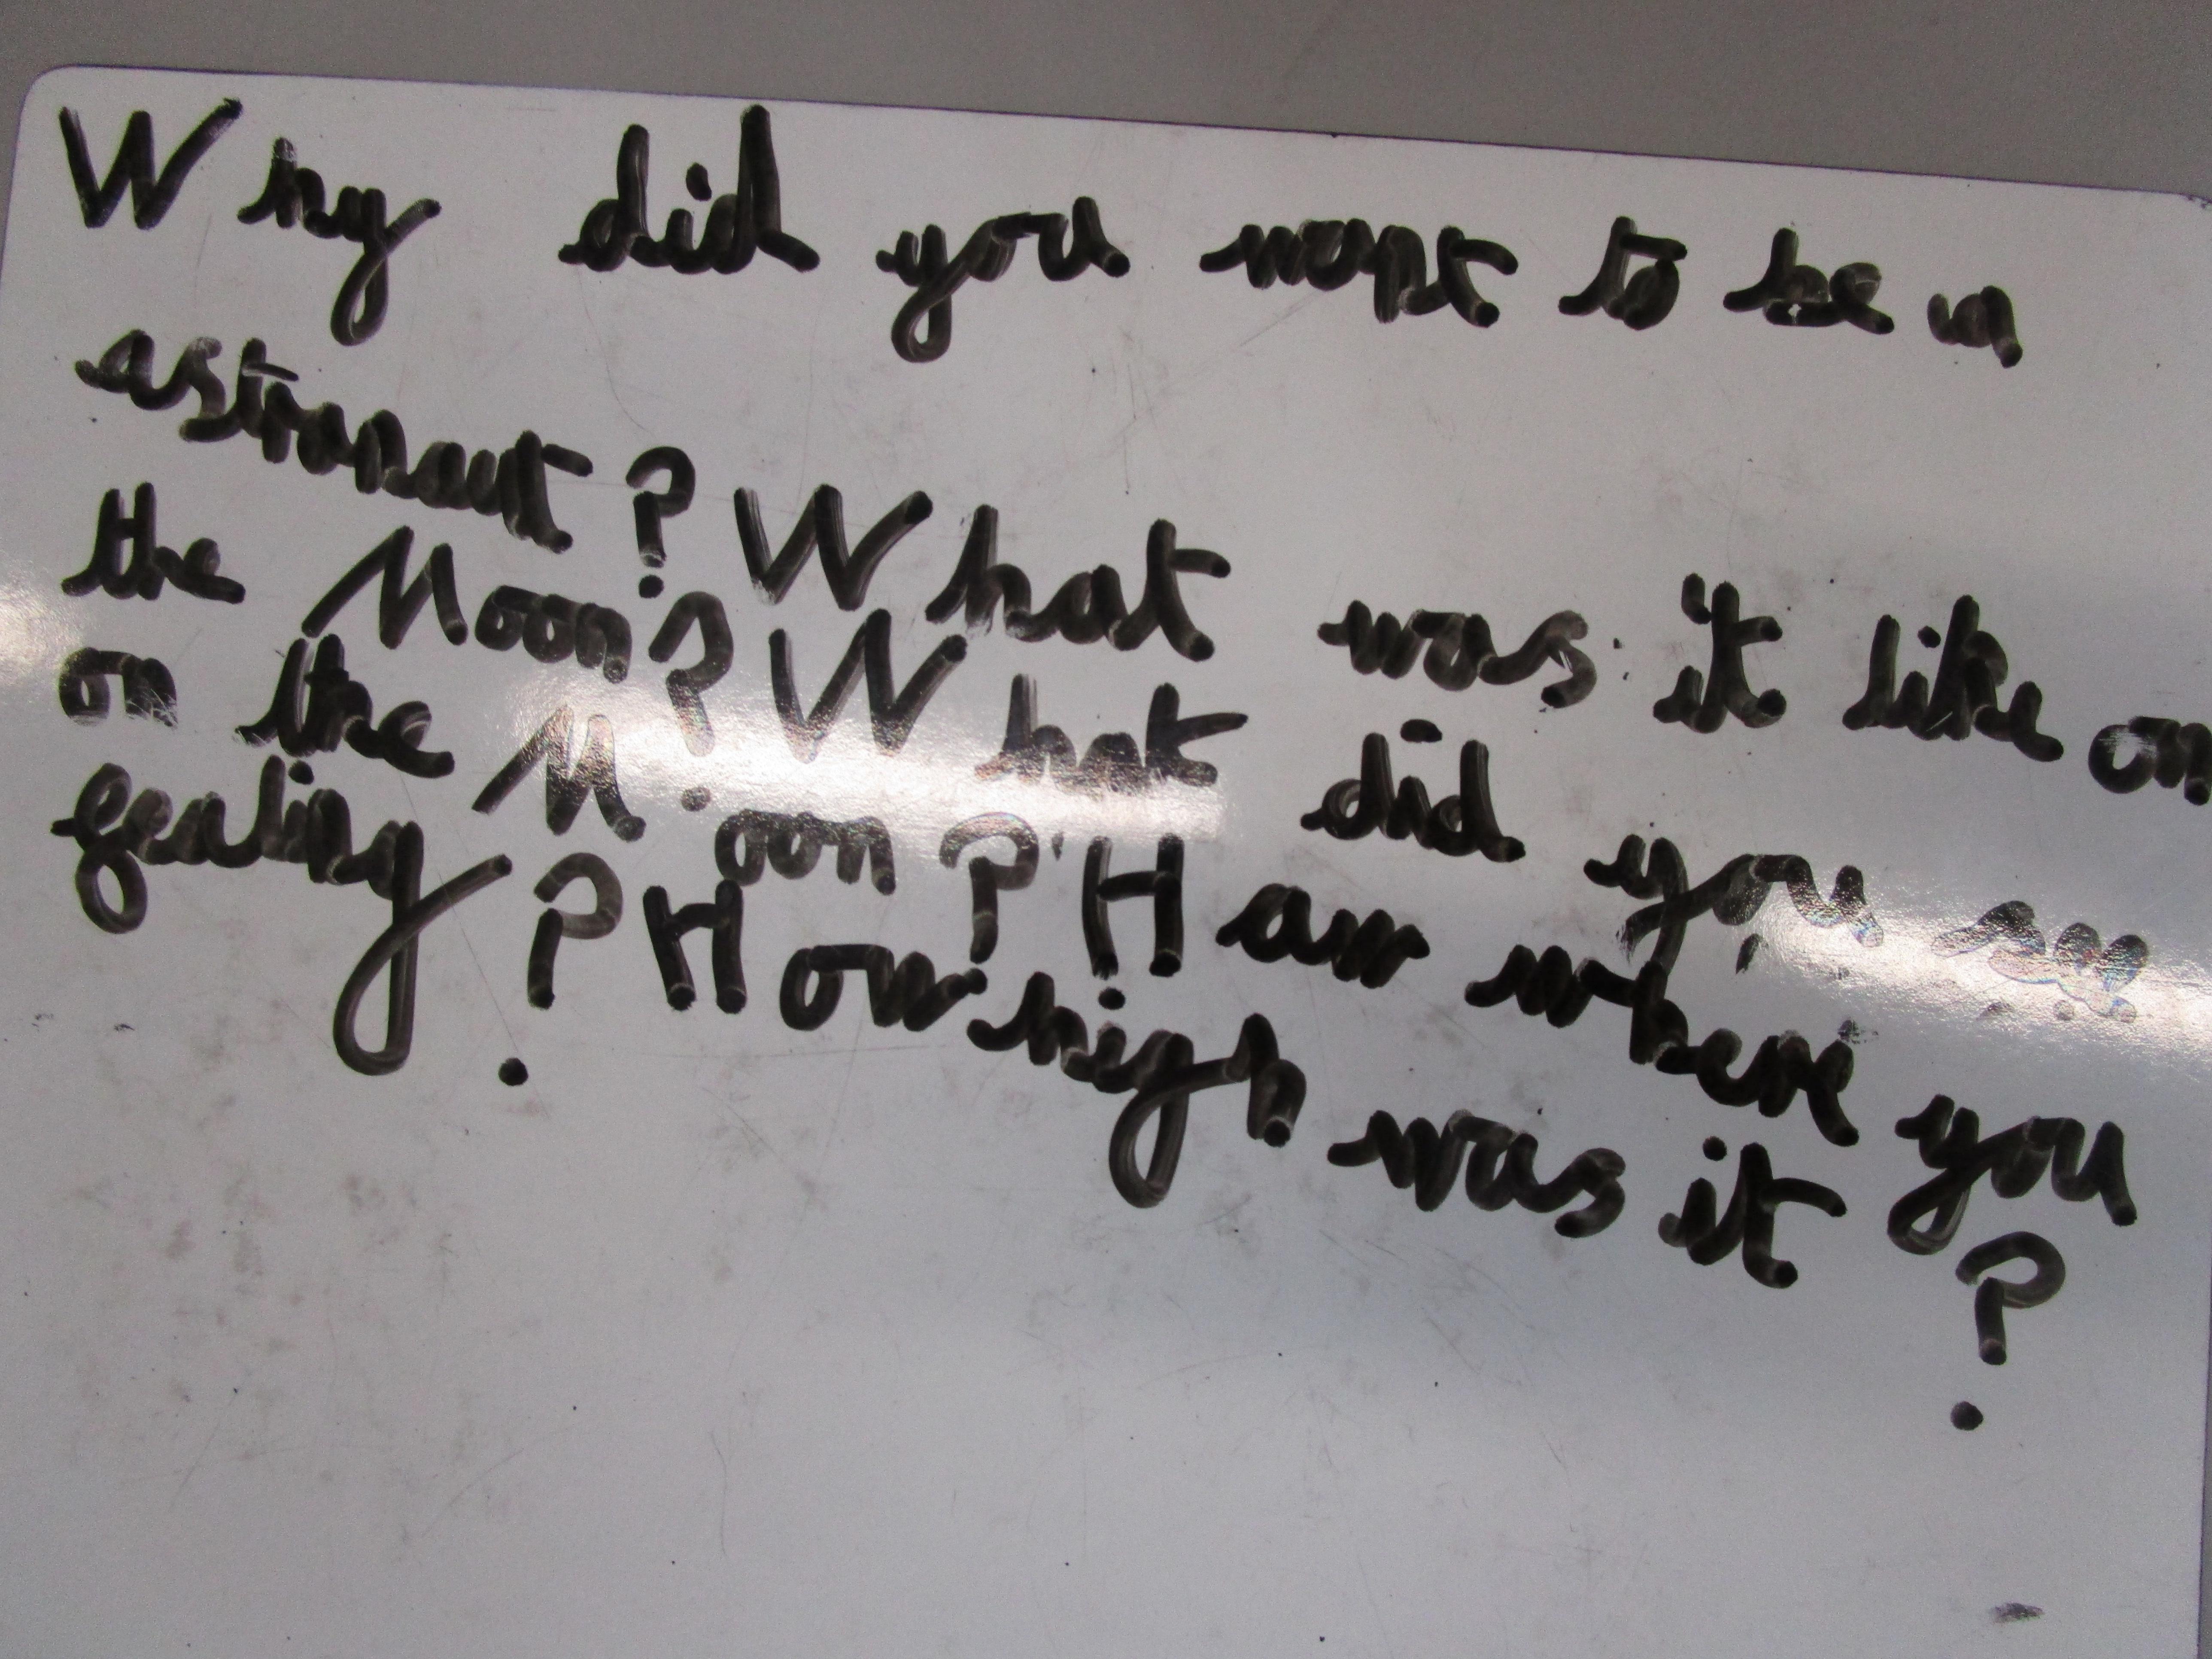 Why did you want to be a
astronaut? What was it like on
the Moon? What did you say
on the Moon? Haw where you
fealing? How high was it?